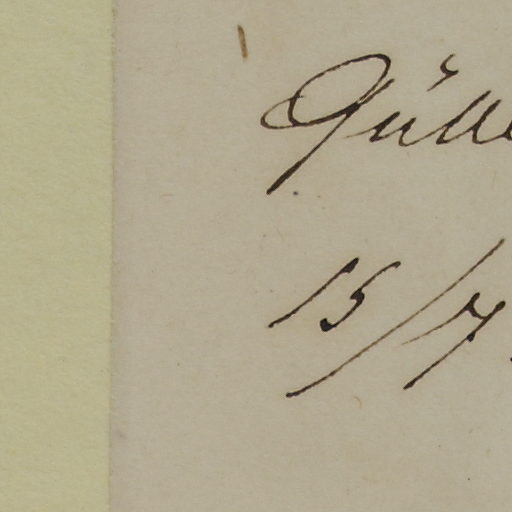 Gülle
15/7.